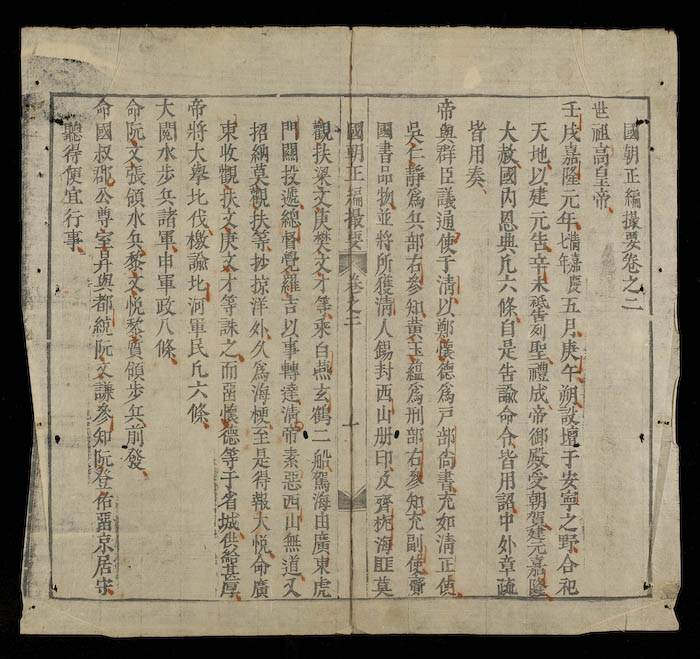 國朝正編撮要卷之二
世祖高皇帝
壬戌嘉隆元年清嘉慶七年五月庚午朔設壇于安寧之野合祀
天地以建元告辛未祗告列聖禮成帝御殿受朝賀建元嘉隆
大赦國內恩典凡六條自是告諭命令皆用詔中外章疏
皆用奏
帝與群臣議通使于清以鄭懷德爲戶部尚書充如清正使
吳仁靜爲兵部右參知黃玉蘊爲刑部右參知充副使齎
國書品物並將所獲清人錫封西山册印及齊桅海匪莫
國朝正編撮要 卷之二 一
觀扶梁文庚樊文才等乘白燕玄鶴二船駕海由廣東虎
門關投遞總督覺羅吉以事轉達清帝素惡西山無道又
招納莫觀扶等抄掠洋外久爲海梗至是得報大悅命廣
東收觀扶文庚文才等誅之而畱懷德等于省城供給甚厚
帝將大舉北伐檄諭北河軍民凡六條
大閱水步兵諸軍申軍政八條
命阮文張領水兵黎文悅黎質領步兵前發
命國叔郡公尊室昇與都統阮文謙參知阮登佑畱京居守
聽得便宜行事